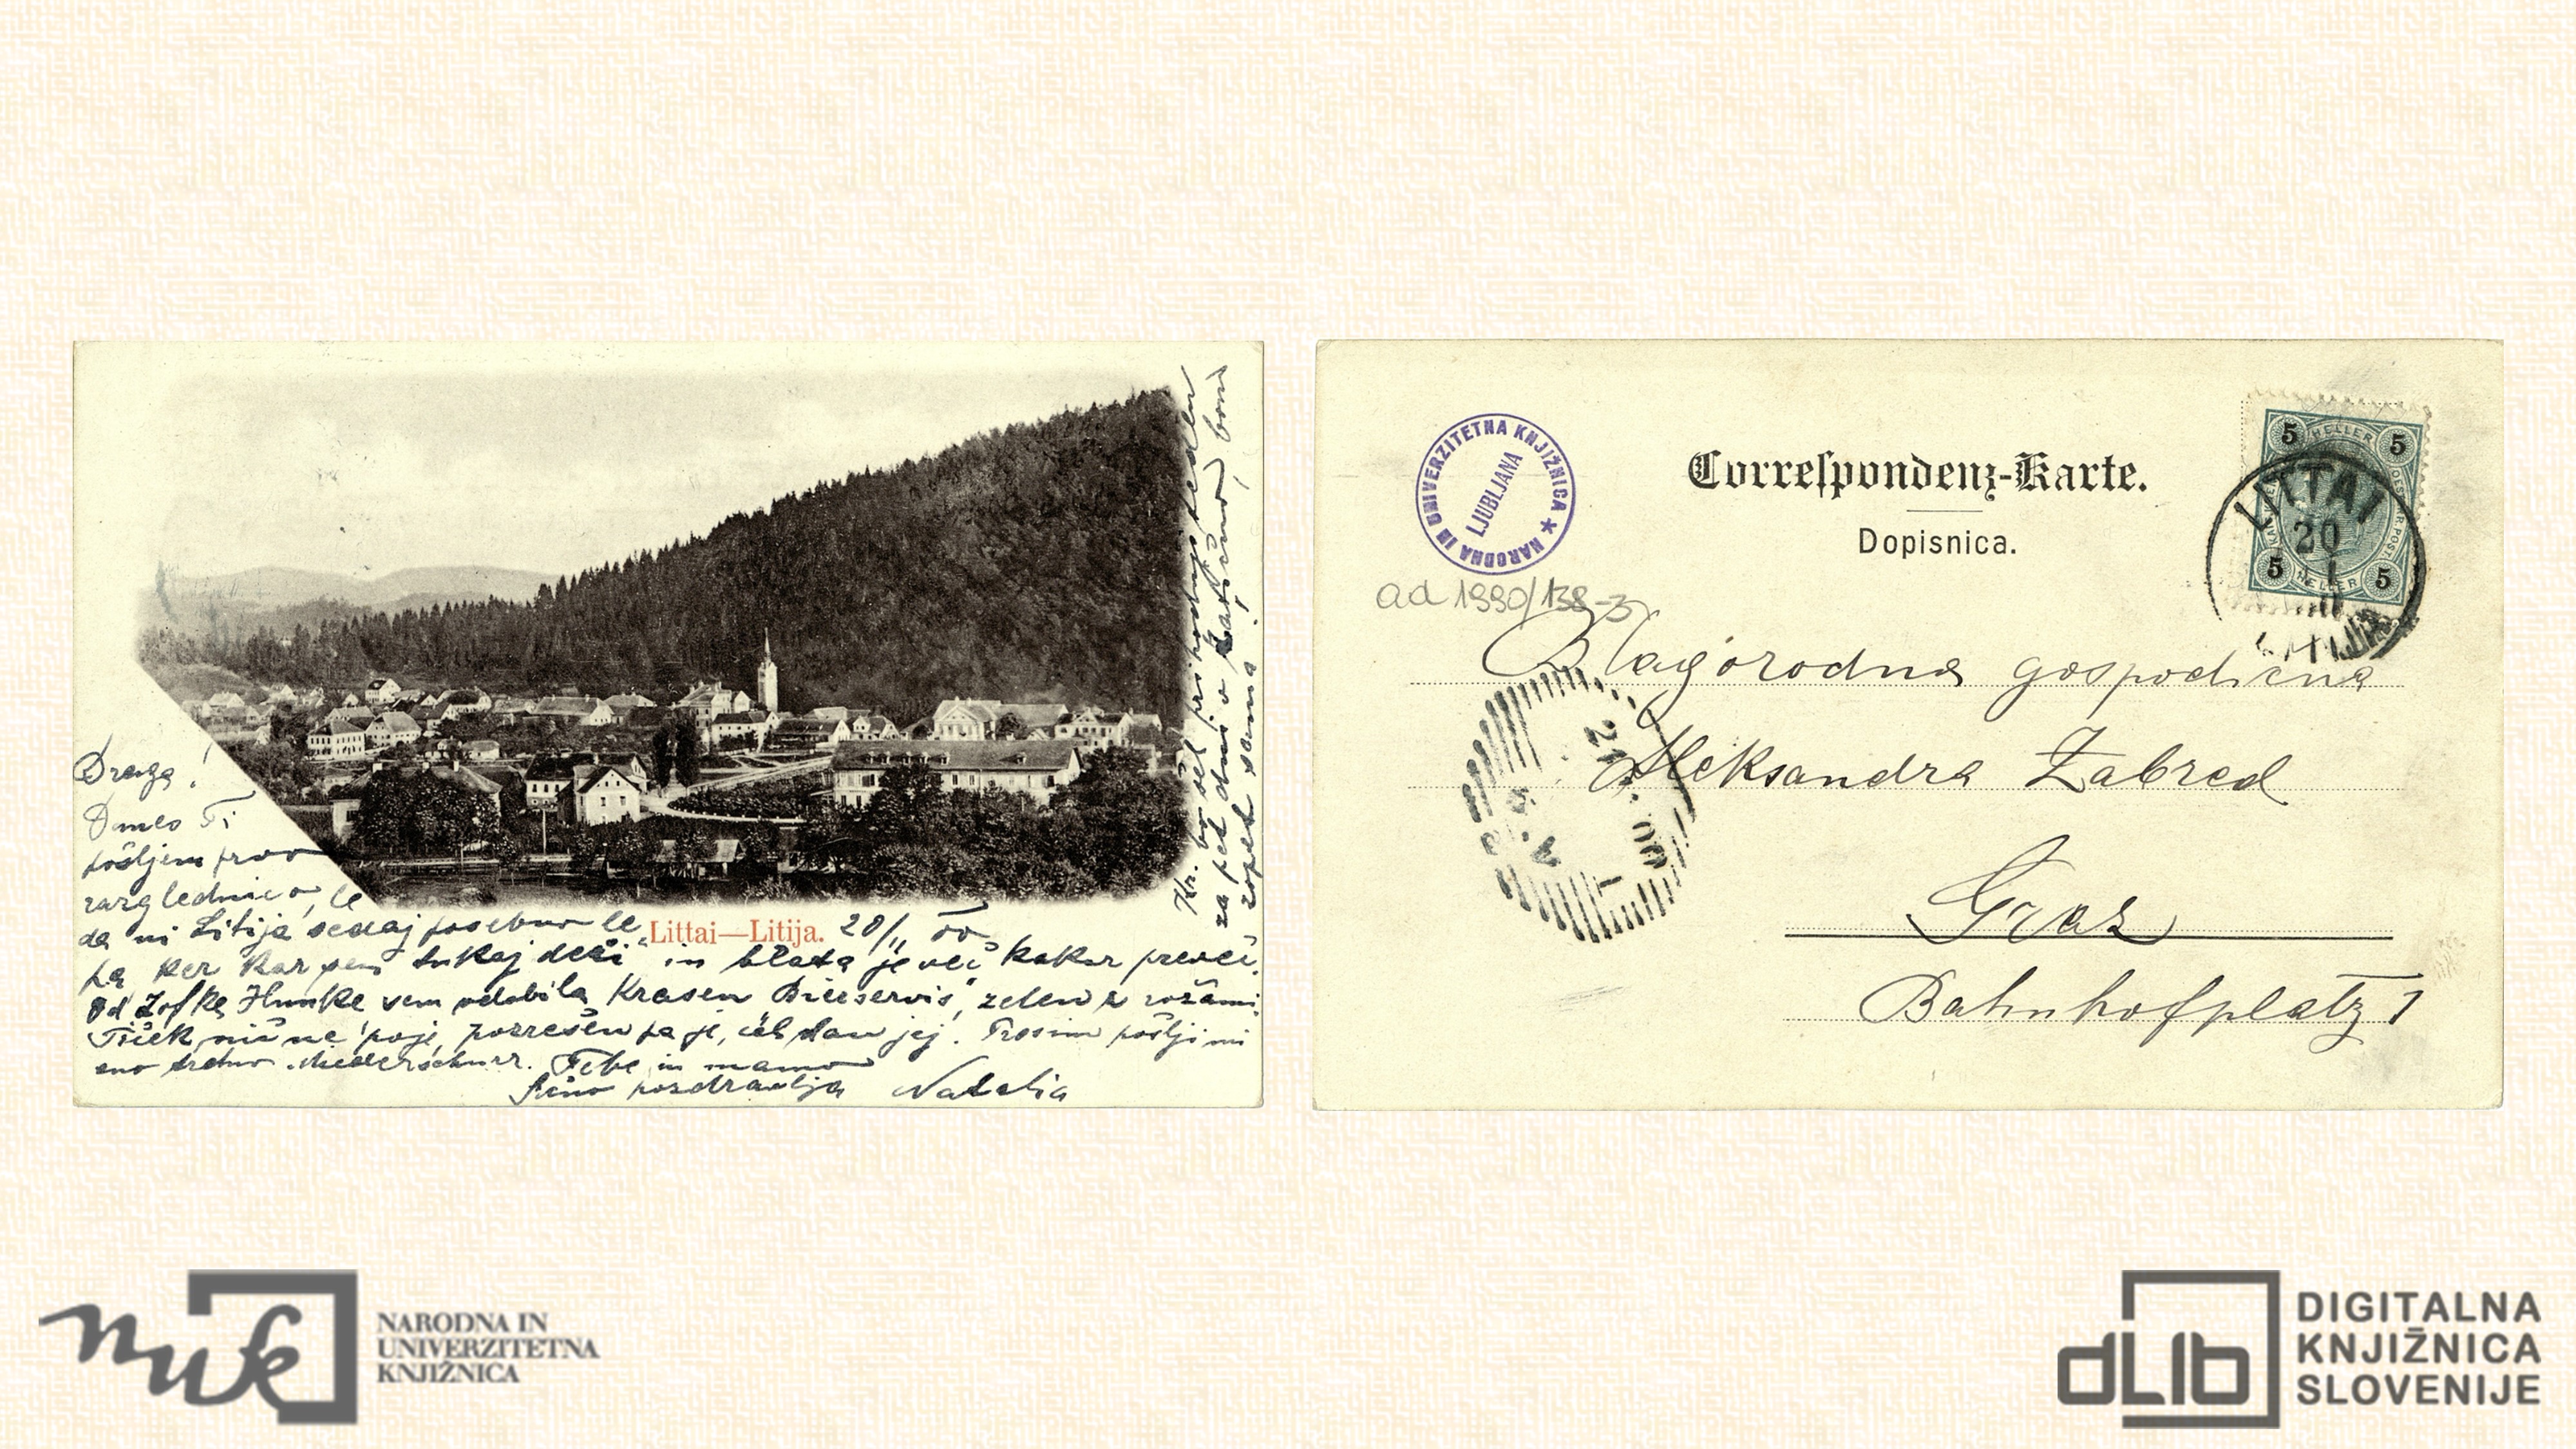 Draga!
Danes Ti
pošljem prvo
razglednico, le
da ni Litija sedaj posebno le
Littai—Litija. 20/1 00
pa, ker kar tukaj deži in blata je več kakor preveč.
Od Zofke sem dobila krasen zelen z rožami.
Tiček nič ne poje, požrešen pa je, cel dan jej. Prosim pošlji mi
eno
Tebe in mamo
pozdravlja Natalia
Kr. bo šel prihodnji teden
za pet dni v bom
zopet sama!
NARODNA IN UNIVERZITETNA KNJIŽNICA
LJUBLJANA
ad 1990/138-3
Correſpondenz-Karte.
Dopisnica.
5 HELLER 5
5 HELLER 5
LITTAI
20
1
LITIJA
Blagorodna gospodična
Aleksandra Zabred
Graz
Bahnhofplatz 1
21. 1. 00
nuk
NARODNA IN
UNIVERZITETNA
KNJIŽNICA
dLib
DIGITALNA
KNJIŽNICA
SLOVENIJE